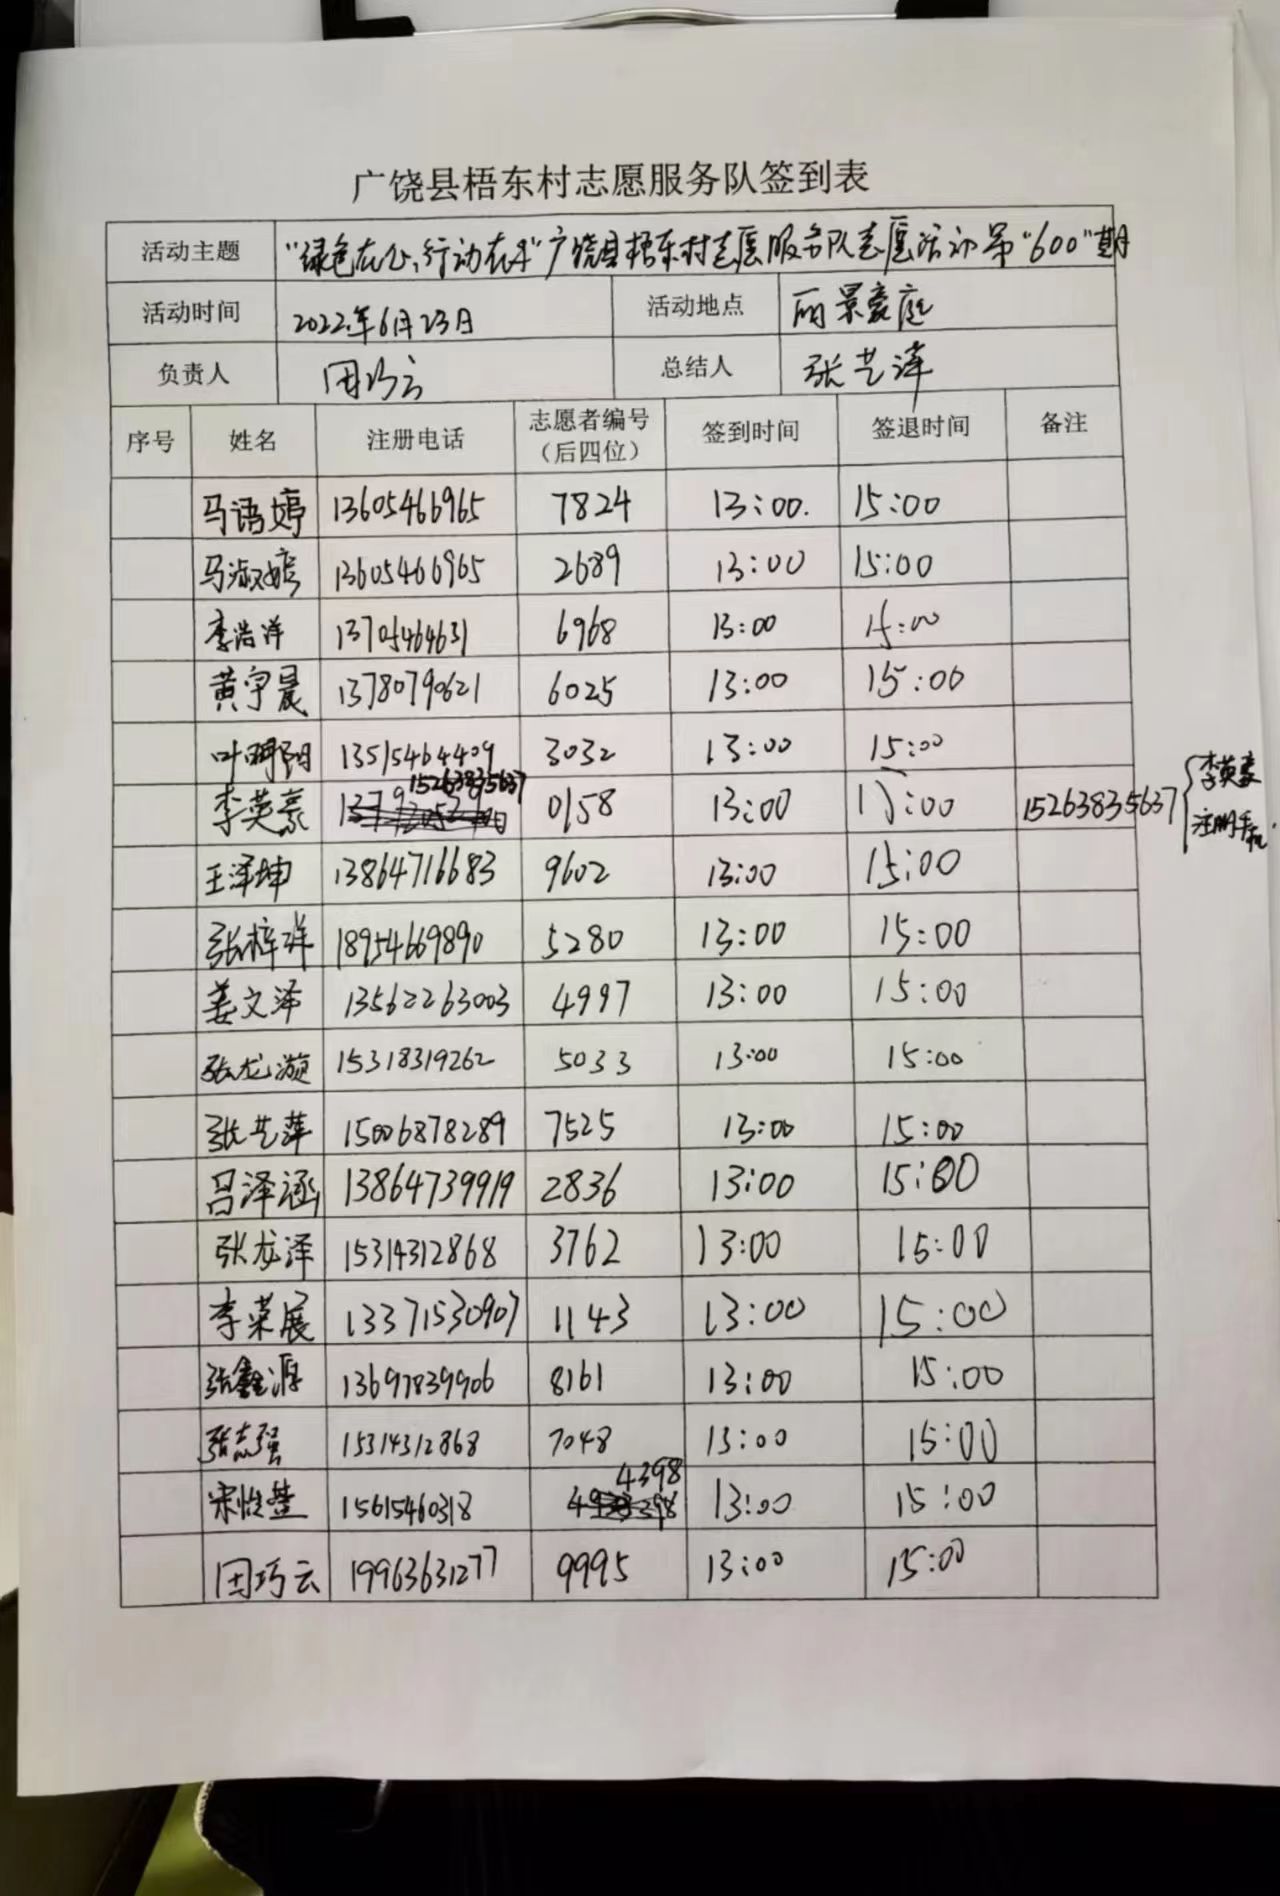 广饶县梧东村志愿服务队签到表
活动主题 "绿色在心,行动在手"广饶县梧东村志愿服务队志愿活动第"600"期
活动时间 2022年6月23日 活动地点 丽景豪庭
负责人 田巧云 总结人 张艺萍
序号 姓名 注册电话 志愿者编号(后四位) 签到时间 签退时间 备注
马语婷 13605466965 7824 13:00. 15:00
马淑婷 13605466965 2689 13:00 15:00
李浩洋 13705464631 6968 13:00 15:00
黄宇晨 13780790621 6025 13:00 15:00
叶明阳 13515464409 3032 13:00 15:00
李英豪 15263835637 0158 13:00 15:00 15263835637 李英豪 注册手机
王泽坤 13864716683 9602 13:00 15:00
张梓洋 18954669890 5280 13:00 15:00
姜文泽 13562263003 4997 13:00 15:00
张龙灏 15318319262 5033 13:00 15:00
张艺萍 15006878289 7525 13:00 15:00
吕泽涵 13864739919 2836 13:00 15:00
张龙泽 15314312868 3762 13:00 15:00
李荣展 13371530907 1143 13:00 15:00
张鑫源 13697839906 8161 13:00 15:00
张志强 15314312868 7048 13:00 15:00
宋 15615460318 4398 13:00 15:00
田巧云 19963631277 9995 13:00 15:00